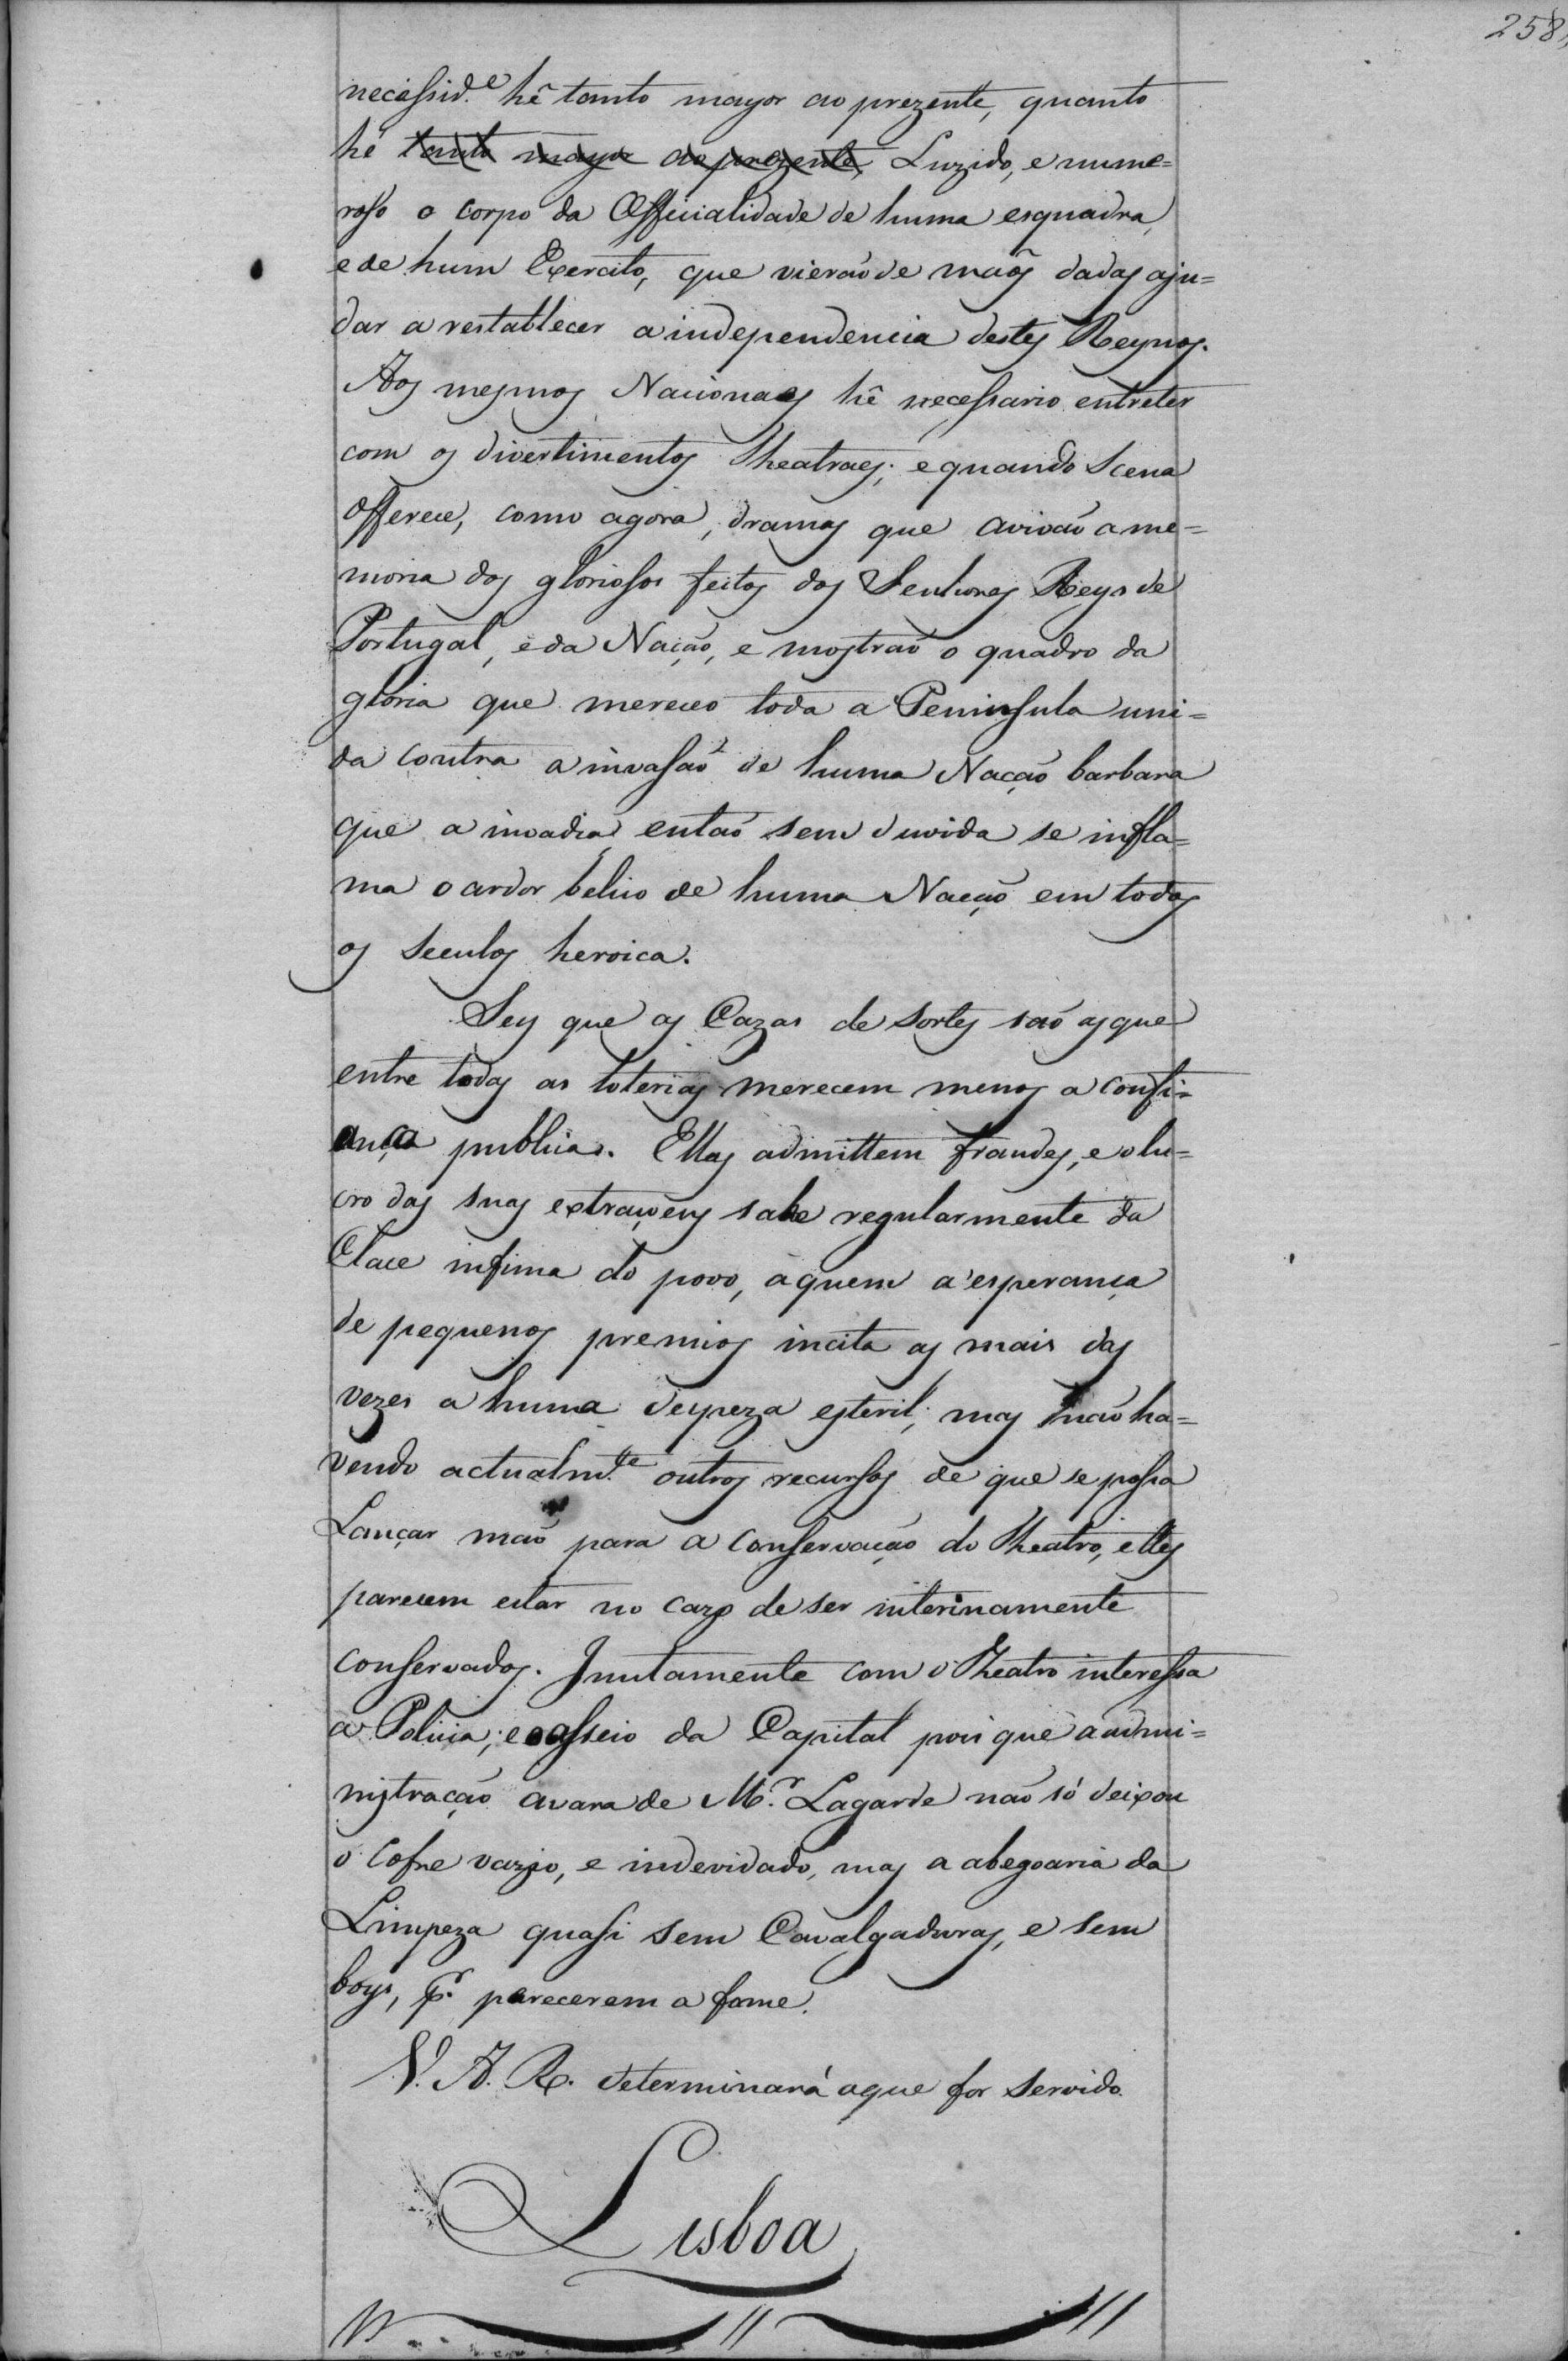 258
necessid.e hê tanto mayor ao prezente, quanto
hê tanto mayor ao prezente, Luzido, e nume=
roso o corpo da Officialidade de huma esquadra,
e de hum Exercito, que vierão de mãos dadas aju=
dar a restablecer a independencia destes Reynos.
Aos mesmos Nacionaes hê necessario entreter
com os divertimentos Theatraes; e quando Scena
offerece, como agora, dramas que avivão a me=
moria dos gloriosos feitos dos Senhores Reys de
Portugal, e da Nação, e mostrão o quadro da
gloria que mereceo toda a Peninsula uni=
da contra a invasão de huma Nação barbara
que a invadia, então sem duvida se infla=
ma o ardor belico de huma Nação em todos
os Seculos heroica.
Sey que as Cazas de Sortes são as que
entre todas as loterias merecem menos a confi=
ança publica. Ellas admittem fraudes, e o lu=
cro das suas extraçoens sahe regularmente da
Clace infima do povo, a quem a esperança
de pequenos premios incita as mais das
vezes a huma despeza esteril; mas não ha=
vendo actualm.te outros recursos de que se possa
Lançar mão para a Conservação do Theatro, elles
parecem estar no cazo de ser interinamente
conservados. Juntamente com o Theatro interessa
a Policia, e o asseio da Capital pois que a admi=
nistração avara de M.r Lagarde não só deixou
o Cofre vazio, e indevidado, mas a abegoaria da
Limpeza quasi sem Cavalgaduras, e sem
boys, p.r parecerem a fome.
V. A. R. determinará aque for servido.
Lisboa